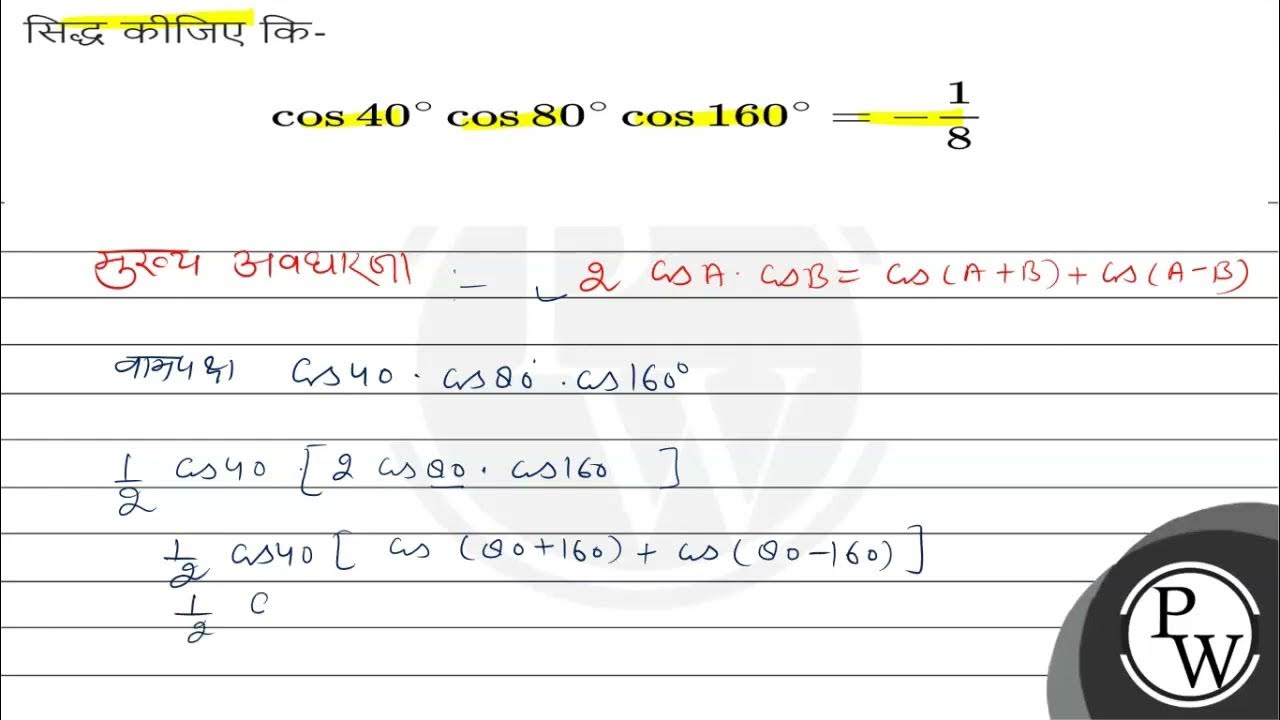 सिद्ध कीजिए कि-
cos 40° cos 80° cos 160° = -1/8
मुख्य अवधारणा :- 2 cosA · cosB = cos(A+B) + cos(A-B)
वामपक्ष cos40 · cos80° · cos160°
1/2 cos40 · [2 cos80 · cos160 ]
1/2 cos40 [ cos (80+160) + cos (80-160) ]
1/2 C
P
W